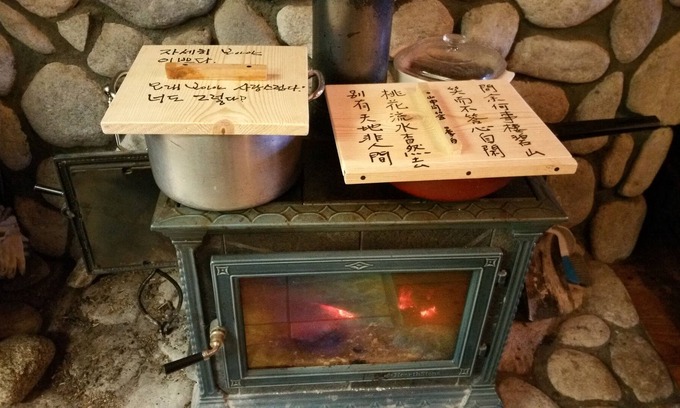 자세히 보아야
이쁘다.
오래 보아야 사랑스럽다.
너도 그렇다.
問余何事棲碧山
笑而不答心自閑
山中問答 李白
桃花流水杳然去
別有天地非人間